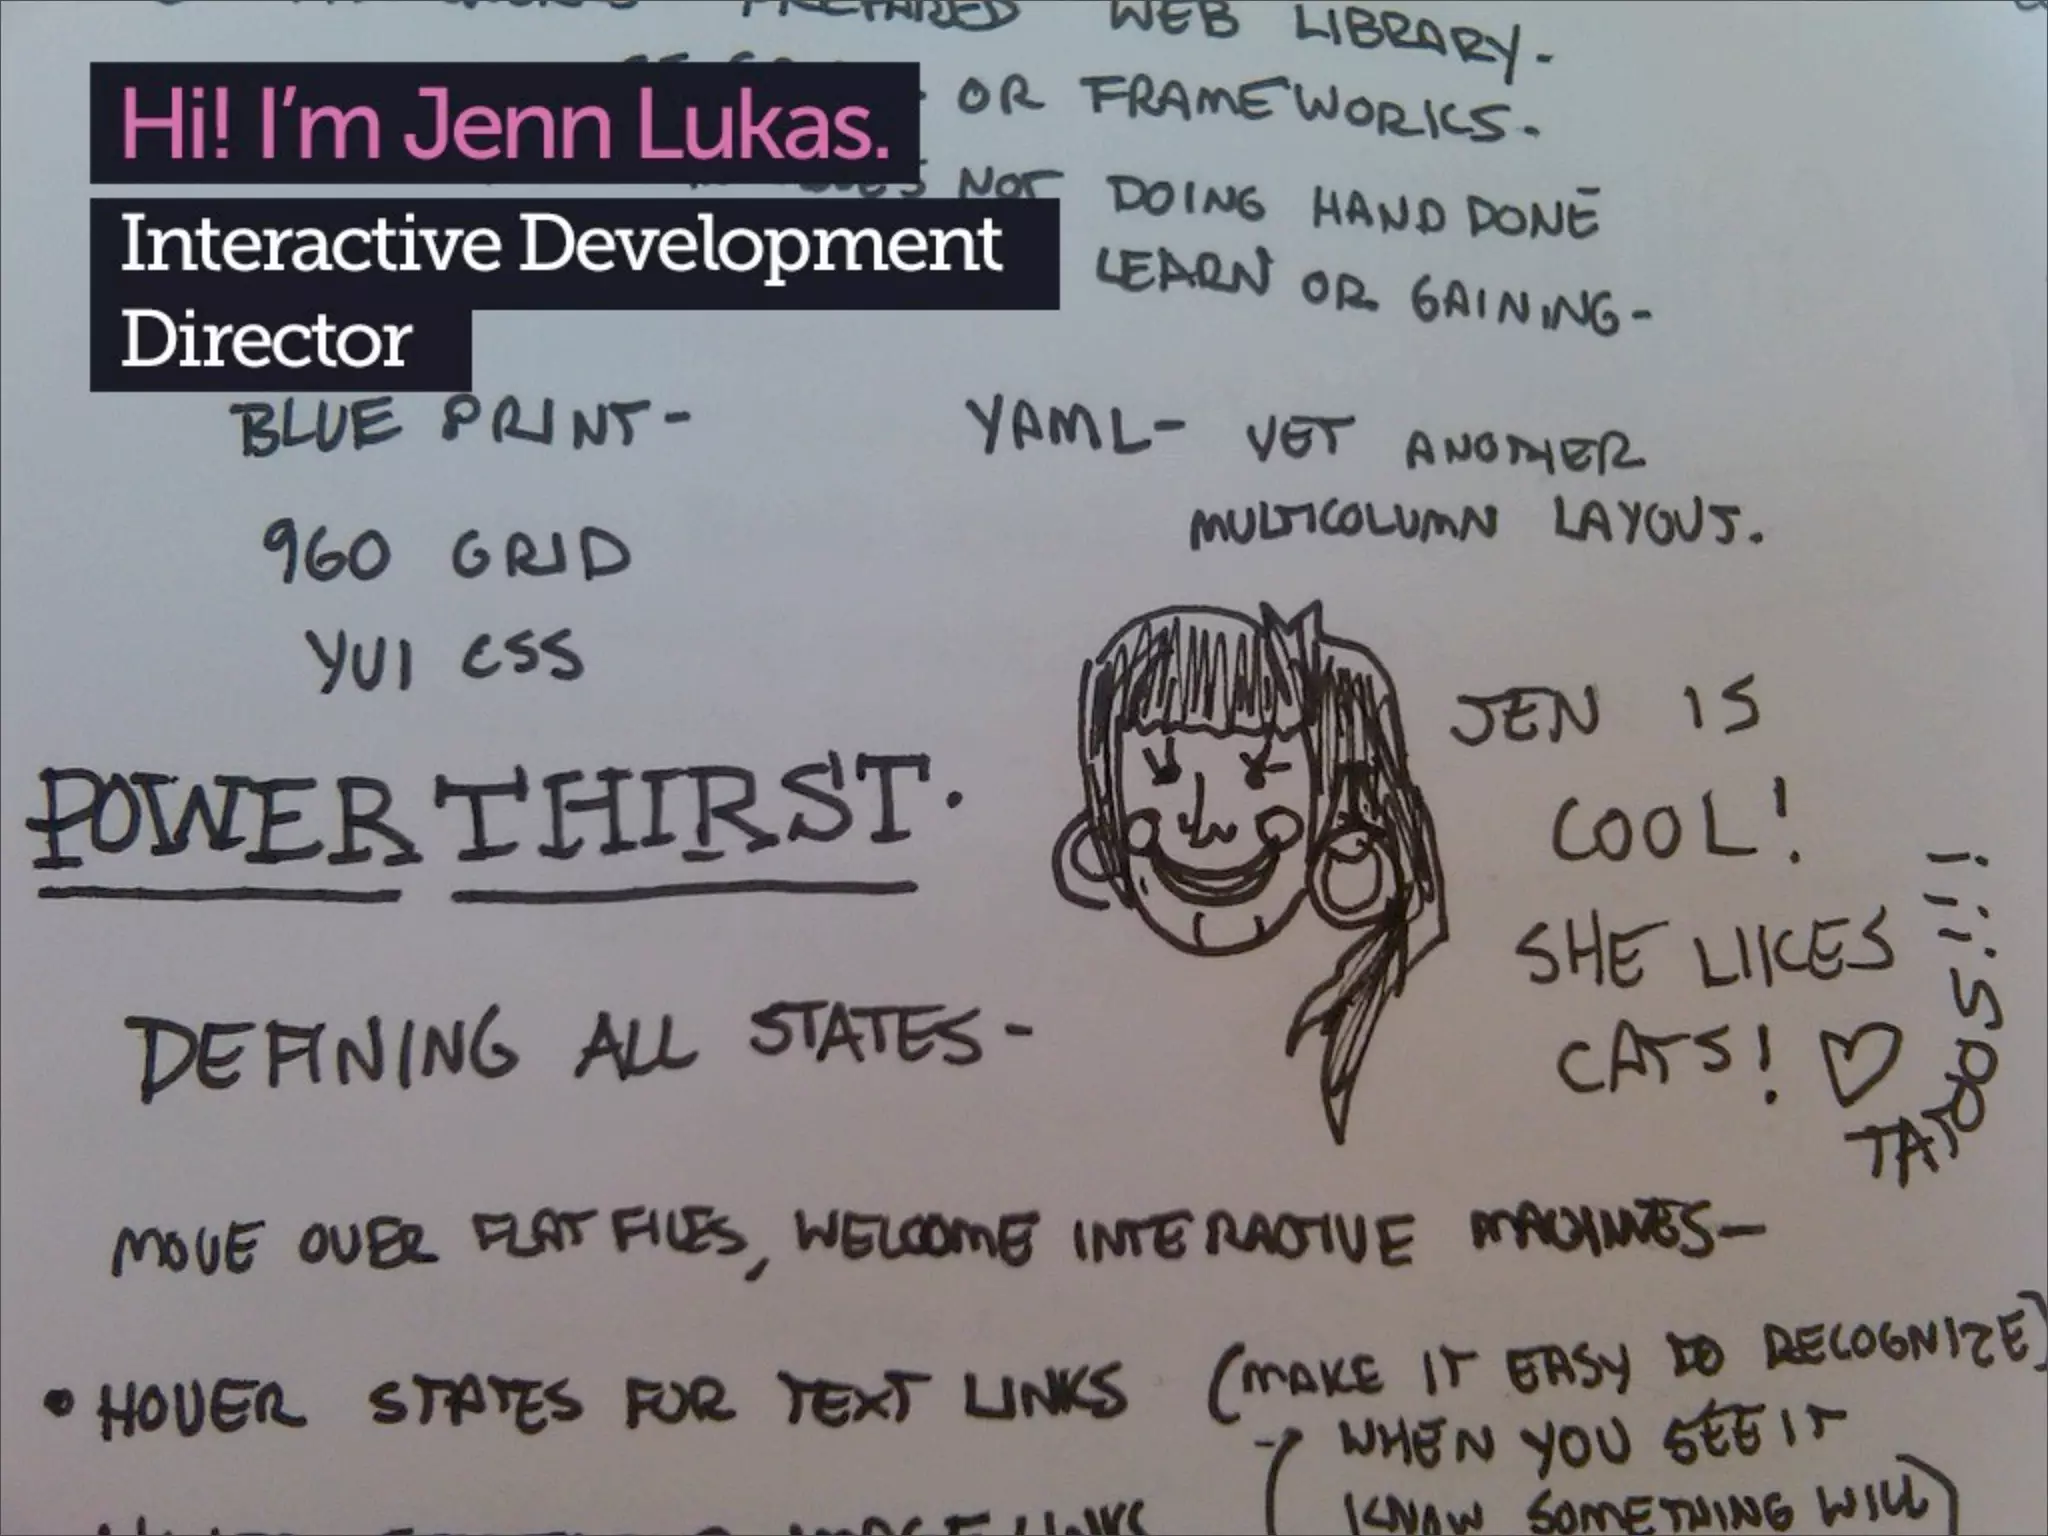 PREPARED WEB LIBRARY.
Hi! I'm Jenn Lukas.
OR FRAMEWORKS.
NOT DOING HAND DONE
Interactive Development
LEARN OR GAINING-
Director
BLUE PRINT-
YAML- YET ANOTHER
MULTICOLUMN LAYOUT.
960 GRID
YUI CSS
JEN IS
COOL!
POWER THIRST.
SHE LIKES
CATS! ♡
TATOOS!!!!
DEFINING ALL STATES-
MOVE OVER FLAT FILES, WELCOME INTERACTIVE MACHINES-
• HOVER STATES FOR TEXT LINKS (MAKE IT EASY TO RECOGNIZE)
WHEN YOU SEE IT
KNOW SOMETHING WILL)
LINKS